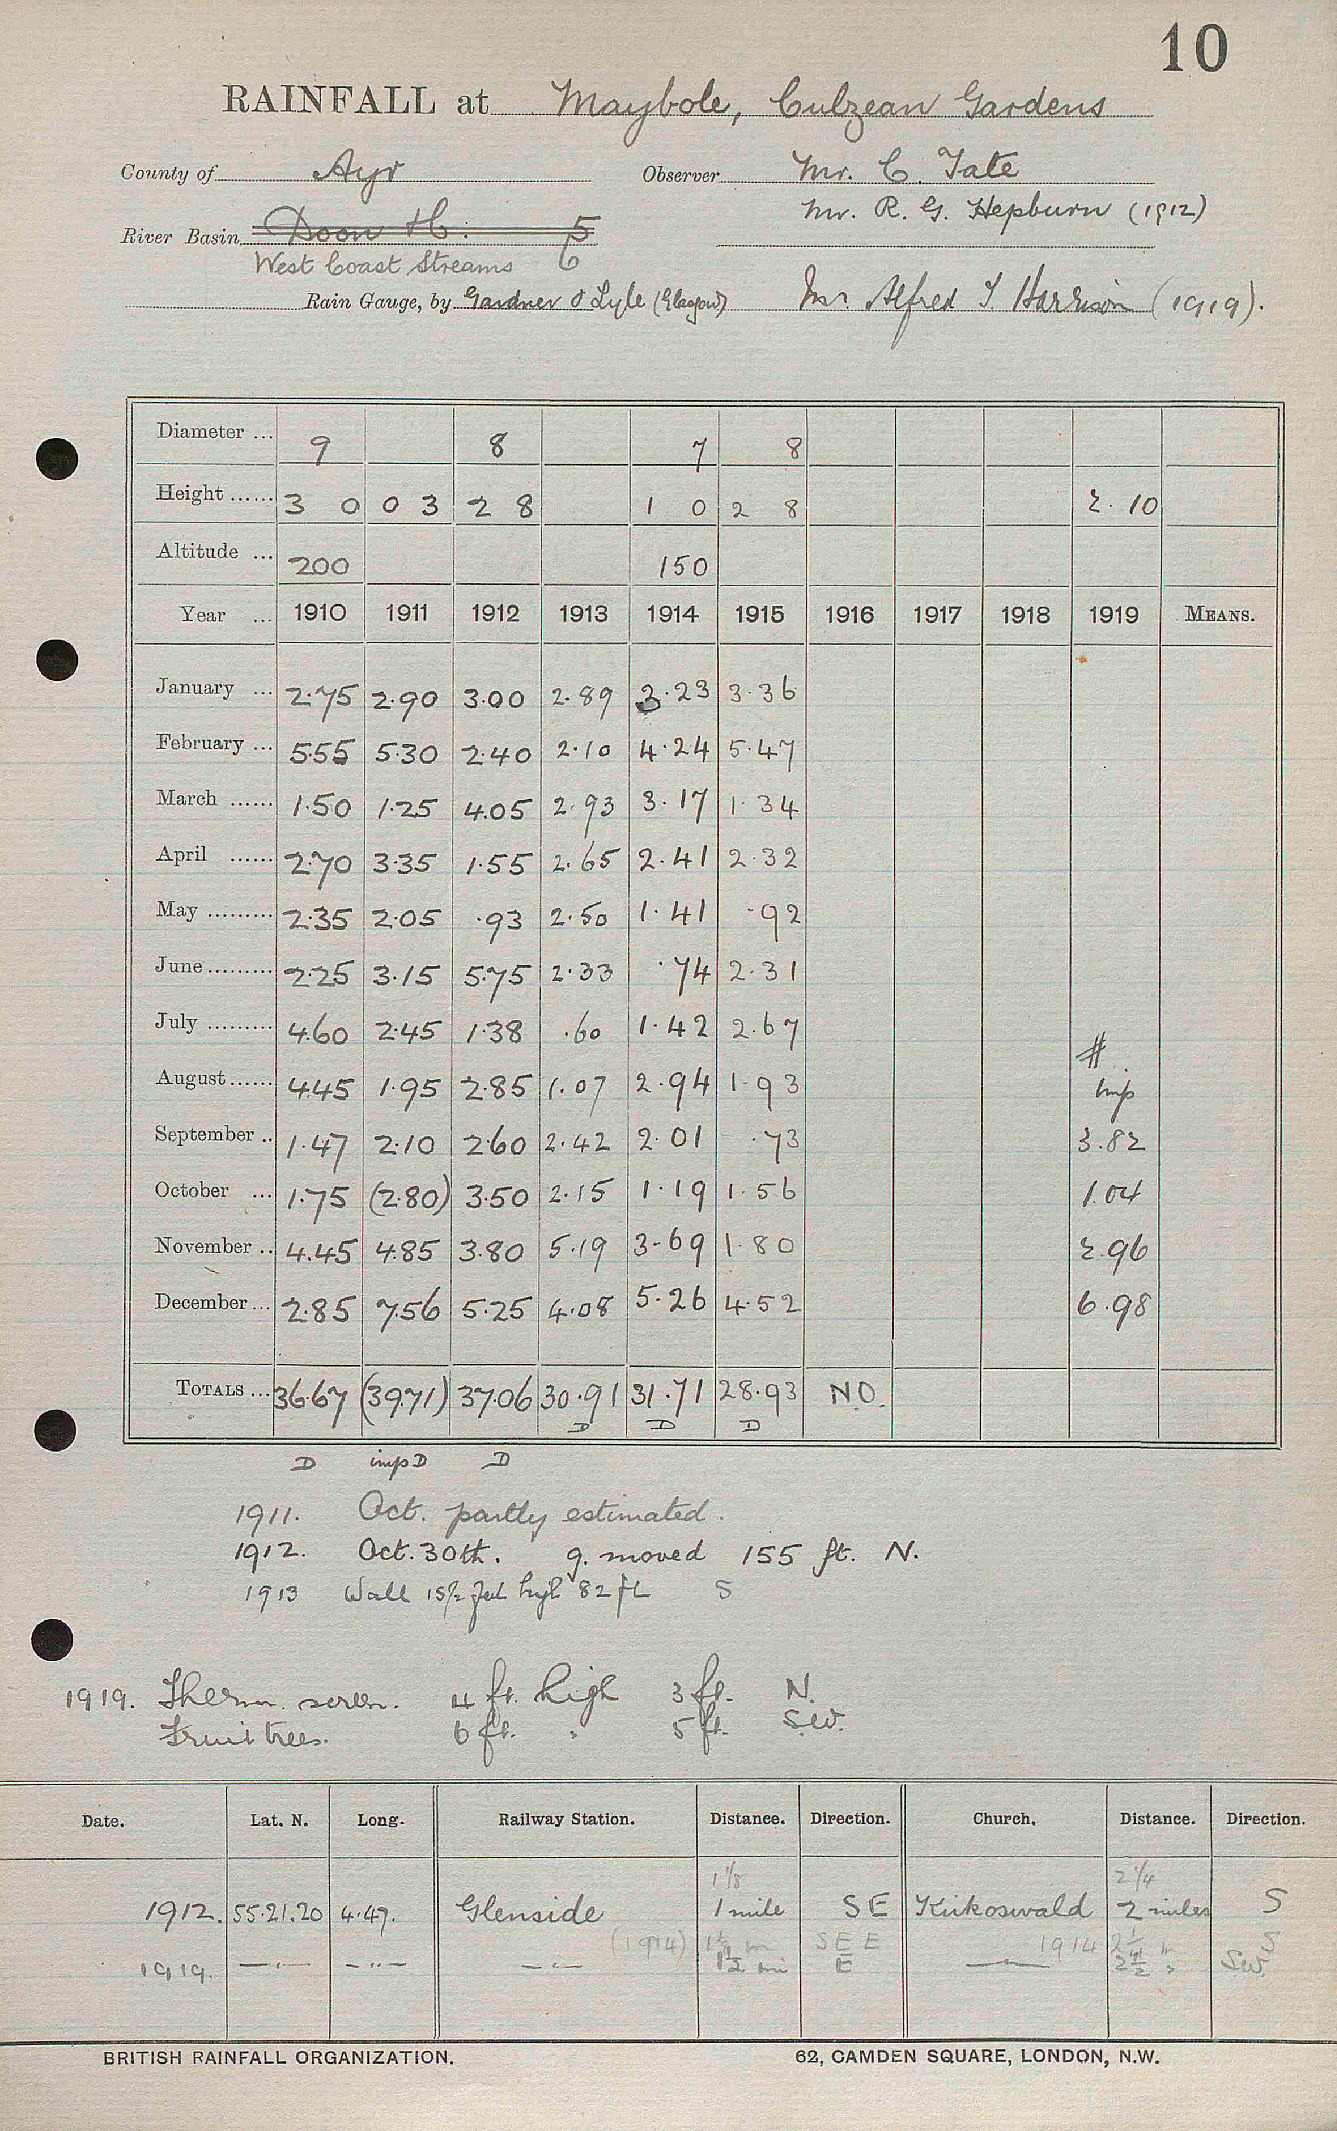 10
RAINFALL at Maybole, Culzean Gardens
County of Ayr Observer Mr. C. Tate
Mr. R. G. Hepburn (1912)
River Basin Doon &c. 5
West Coast Streams 6
Rain Gauge, by Gardner & Lyle (Glasgow) Mr. Alfred T. Harrison (1919).
Diameter ... 9 8 7 8
Height ...... 3 0 0 3 2 8 1 0 2 8 2.10
Altitude ... 200 150
Year ... 1910 1911 1912 1913 1914 1915 1916 1917 1918 1919 MEANS.
January ... 2.75 2.90 3.00 2.89 3.23 3.36
February ... 5.55 5.30 2.40 2.10 4.24 5.47
March ...... 1.50 1.25 4.05 2.93 3.17 1.34
April ...... 2.70 3.35 1.55 2.65 2.41 2.32
May ......... 2.35 2.05 .93 2.50 1.41 .92
June ......... 2.25 3.15 5.75 2.33 .74 2.31
July ......... 4.60 2.45 1.38 .60 1.42 2.67 #
August ...... 4.45 1.95 2.85 1.07 2.94 1.93 imp
September .. 1.47 2.10 2.60 2.42 2.01 .73 3.82
October ... 1.75 (2.80) 3.50 2.15 1.19 1.56 1.04
November .. 4.45 4.85 3.80 5.19 3.69 1.80 2.96
December ... 2.85 7.56 5.25 4.08 5.26 4.52 6.98
TOTALS ... 36.67 (39.71) 37.06 30.91 31.71 28.93 N.O.
D D D
D imp D D
1911. Oct. partly estimated.
1912. Oct. 30th. g. moved 155 ft. N.
1913 Wall 15½ feet high 82 ft S
1919. Therm. screen. 4 ft. high 3 ft. N.
Fruit trees. 6 ft. " 5 ft. S.W.
Date. Lat. N. Long. Railway Station. Distance. Direction. Church. Distance. Direction.
1⅛ 2¼
1912. 55.21.20 4.47. Glenside 1 mile SE Kirkoswald 2 miles S
(1914) SEE 1914 S
1919. — " — — " — — " — 1½ mi E — " — 2½ " SW.
BRITISH RAINFALL ORGANIZATION. 62, CAMDEN SQUARE, LONDON, N.W.